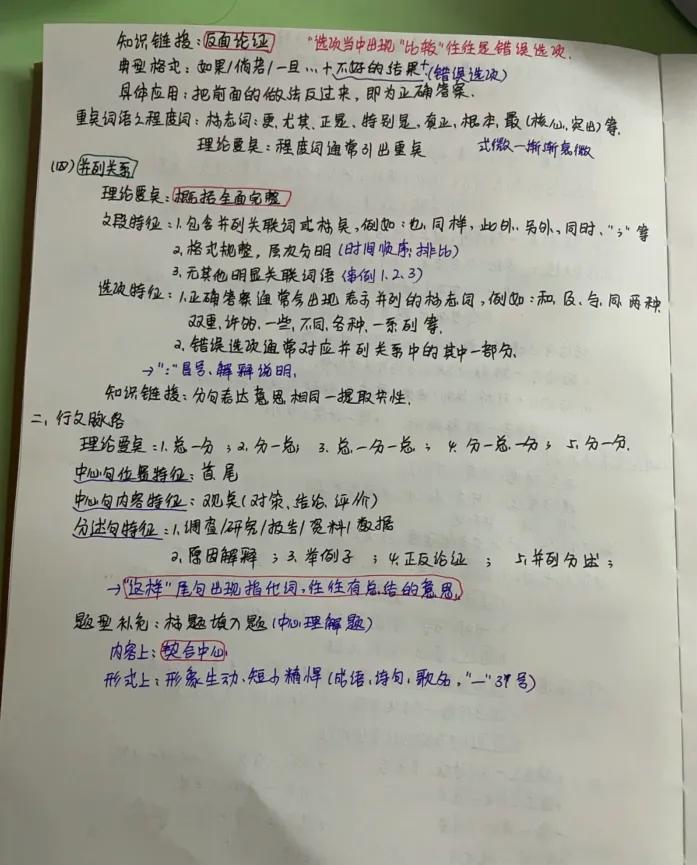 知识链接:反面论证 "选项当中出现"比较"往往是错误选项.
典型格式:如果/倘若/一旦…+不好的结果+(错误选项)
具体应用:把前面的做法反过来,即为正确答案.
重点词语之程度词:标志词:更.尤其.正是.特别是.真正.根本.最(核心.突出)等.
理论要点:程度词通常引出重点 式微—渐渐衰微
(四)并列关系
理论要点:概括全面完整
文段特征:1.包含并列关联词或标点,例如:也.同样.此外.另外.同时.";"等
2.格式规整,层次分明(时间顺序;排比)
3.无其他明显关联词语(事例1.2.3)
选项特征:1.正确答案通常会出现表示并列的标志词,例如:和.及.与.同.两种.
双重.许多.一些.不同.各种.一系列等.
2.错误选项通常对应并列关系中的其中一部分.
→":"冒号.解释说明.
知识链接:分句表达意思相同—提取共性.
二、行文脉络
理论要点:1.总—分;2.分—总;3.总—分—总;4.分—总—分;5.分—分.
中心句位置特征:首.尾
中心句内容特征:观点(对策、结论、评价)
分述句特征:1.调查/研究/报告/资料/数据
2.原因解释;3.举例子;4.正反论证;5.并列分述;
→"这样"尾句出现指代词,往往有总结的意思.
题型补充:标题填入题(中心理解题)
内容上:契合中心.
形式上:形象生动.短小精悍(成语,诗句,歌名,"—"引号)